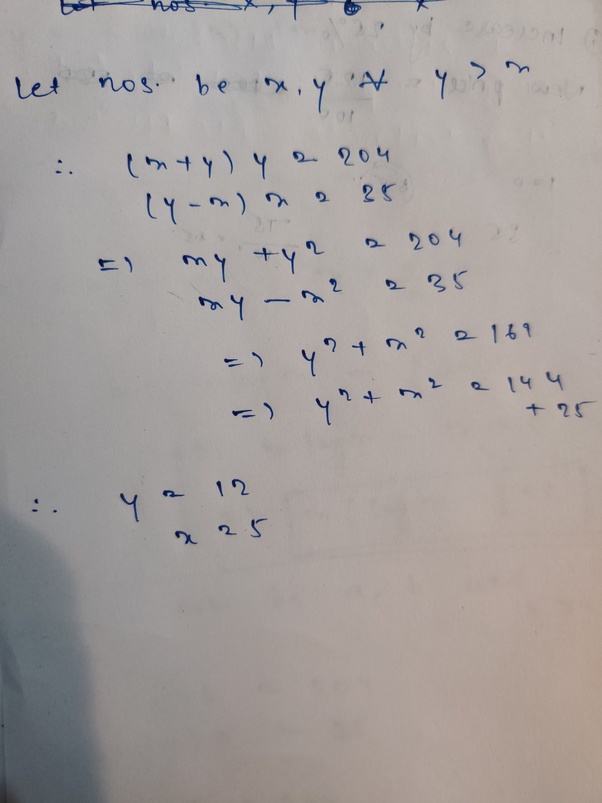 Let nos. be x, y ∀ y > x
∴ (x+y) y = 204
(y-x) x = 35
=) xy + y² = 204
xy - x² = 35
=) y² + x² = 169
=) y² + x² = 144
+ 25
∴ y = 12
x = 5